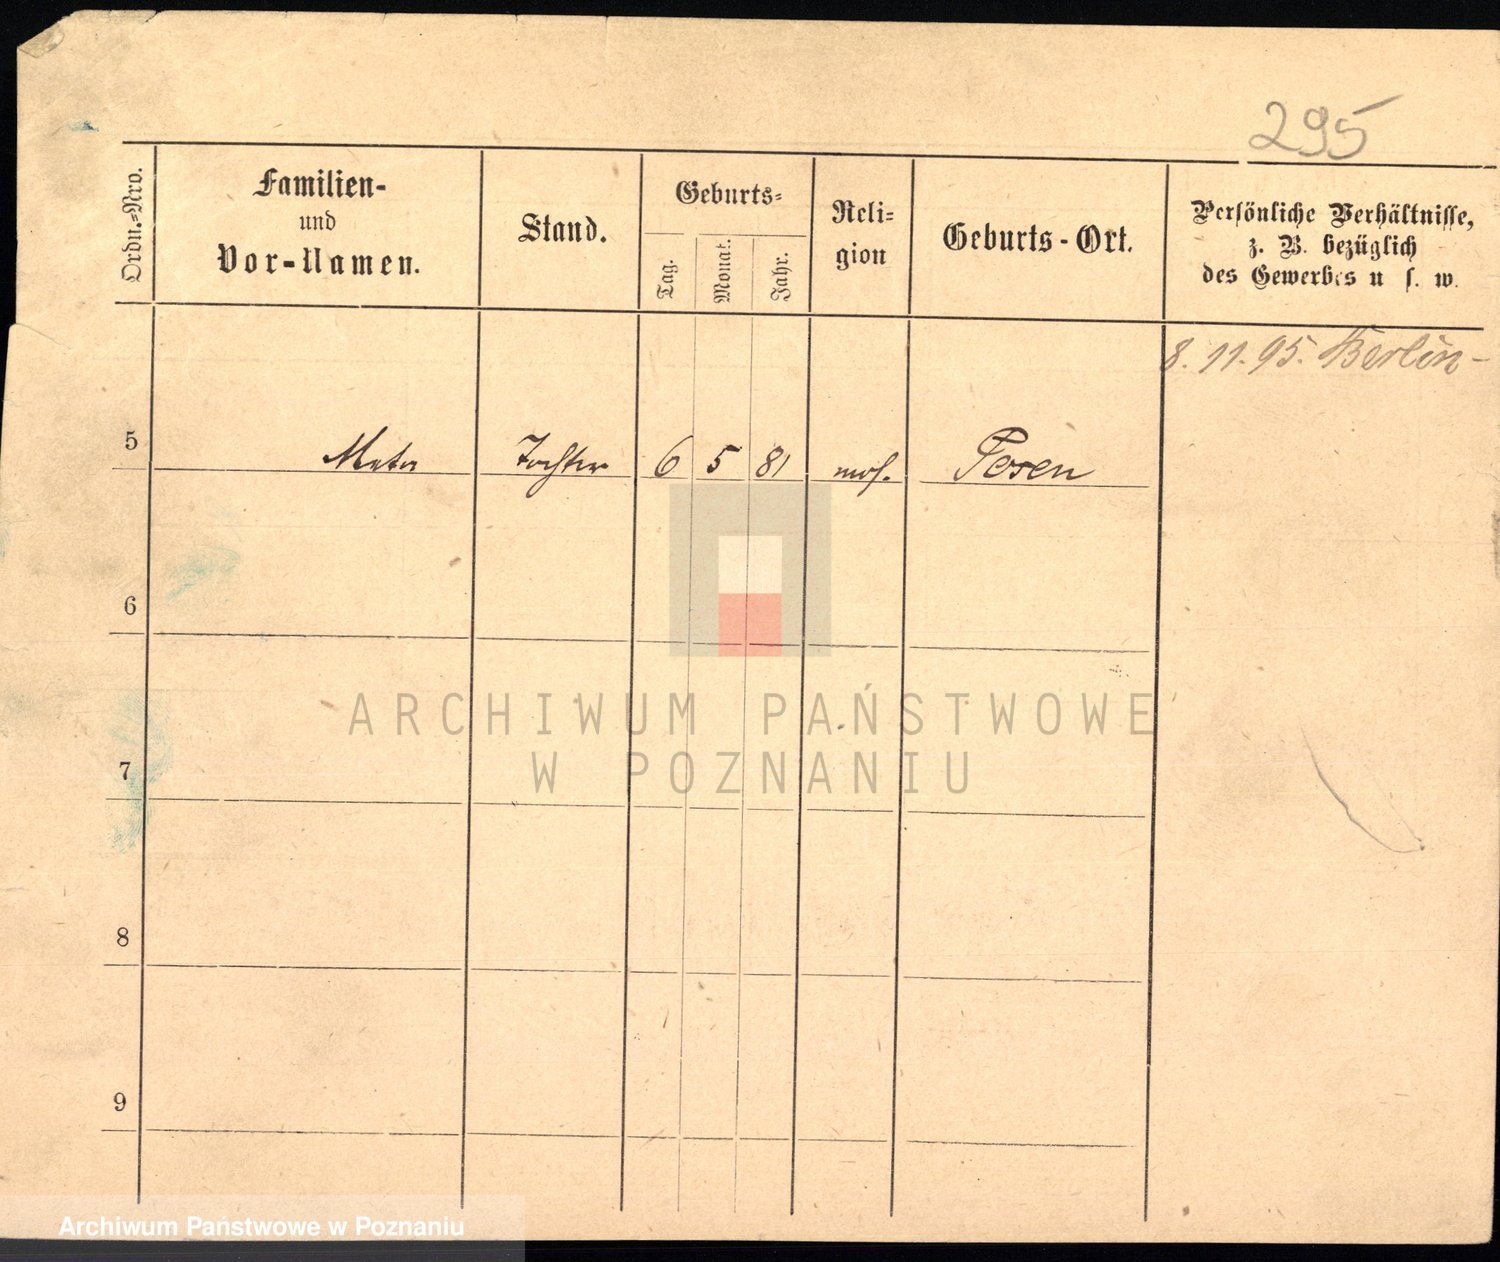 295
Ordn.-Nro.
Familien-
und
Vor-Namen.
Stand.
Geburts-
Tag.
Monat.
Jahr.
Reli-
gion
Geburts-Ort.
Persönliche Verhältnisse,
z. B. bezüglich
des Gewerbes u s. w.
8. 11. 95. Berlin -
5 Meta Tochter 6 5 81 mos. Posen
6
7
8
9
ARCHIWUM PAŃSTWOWE
W POZNANIU
Archiwum Państwowe w Poznaniu